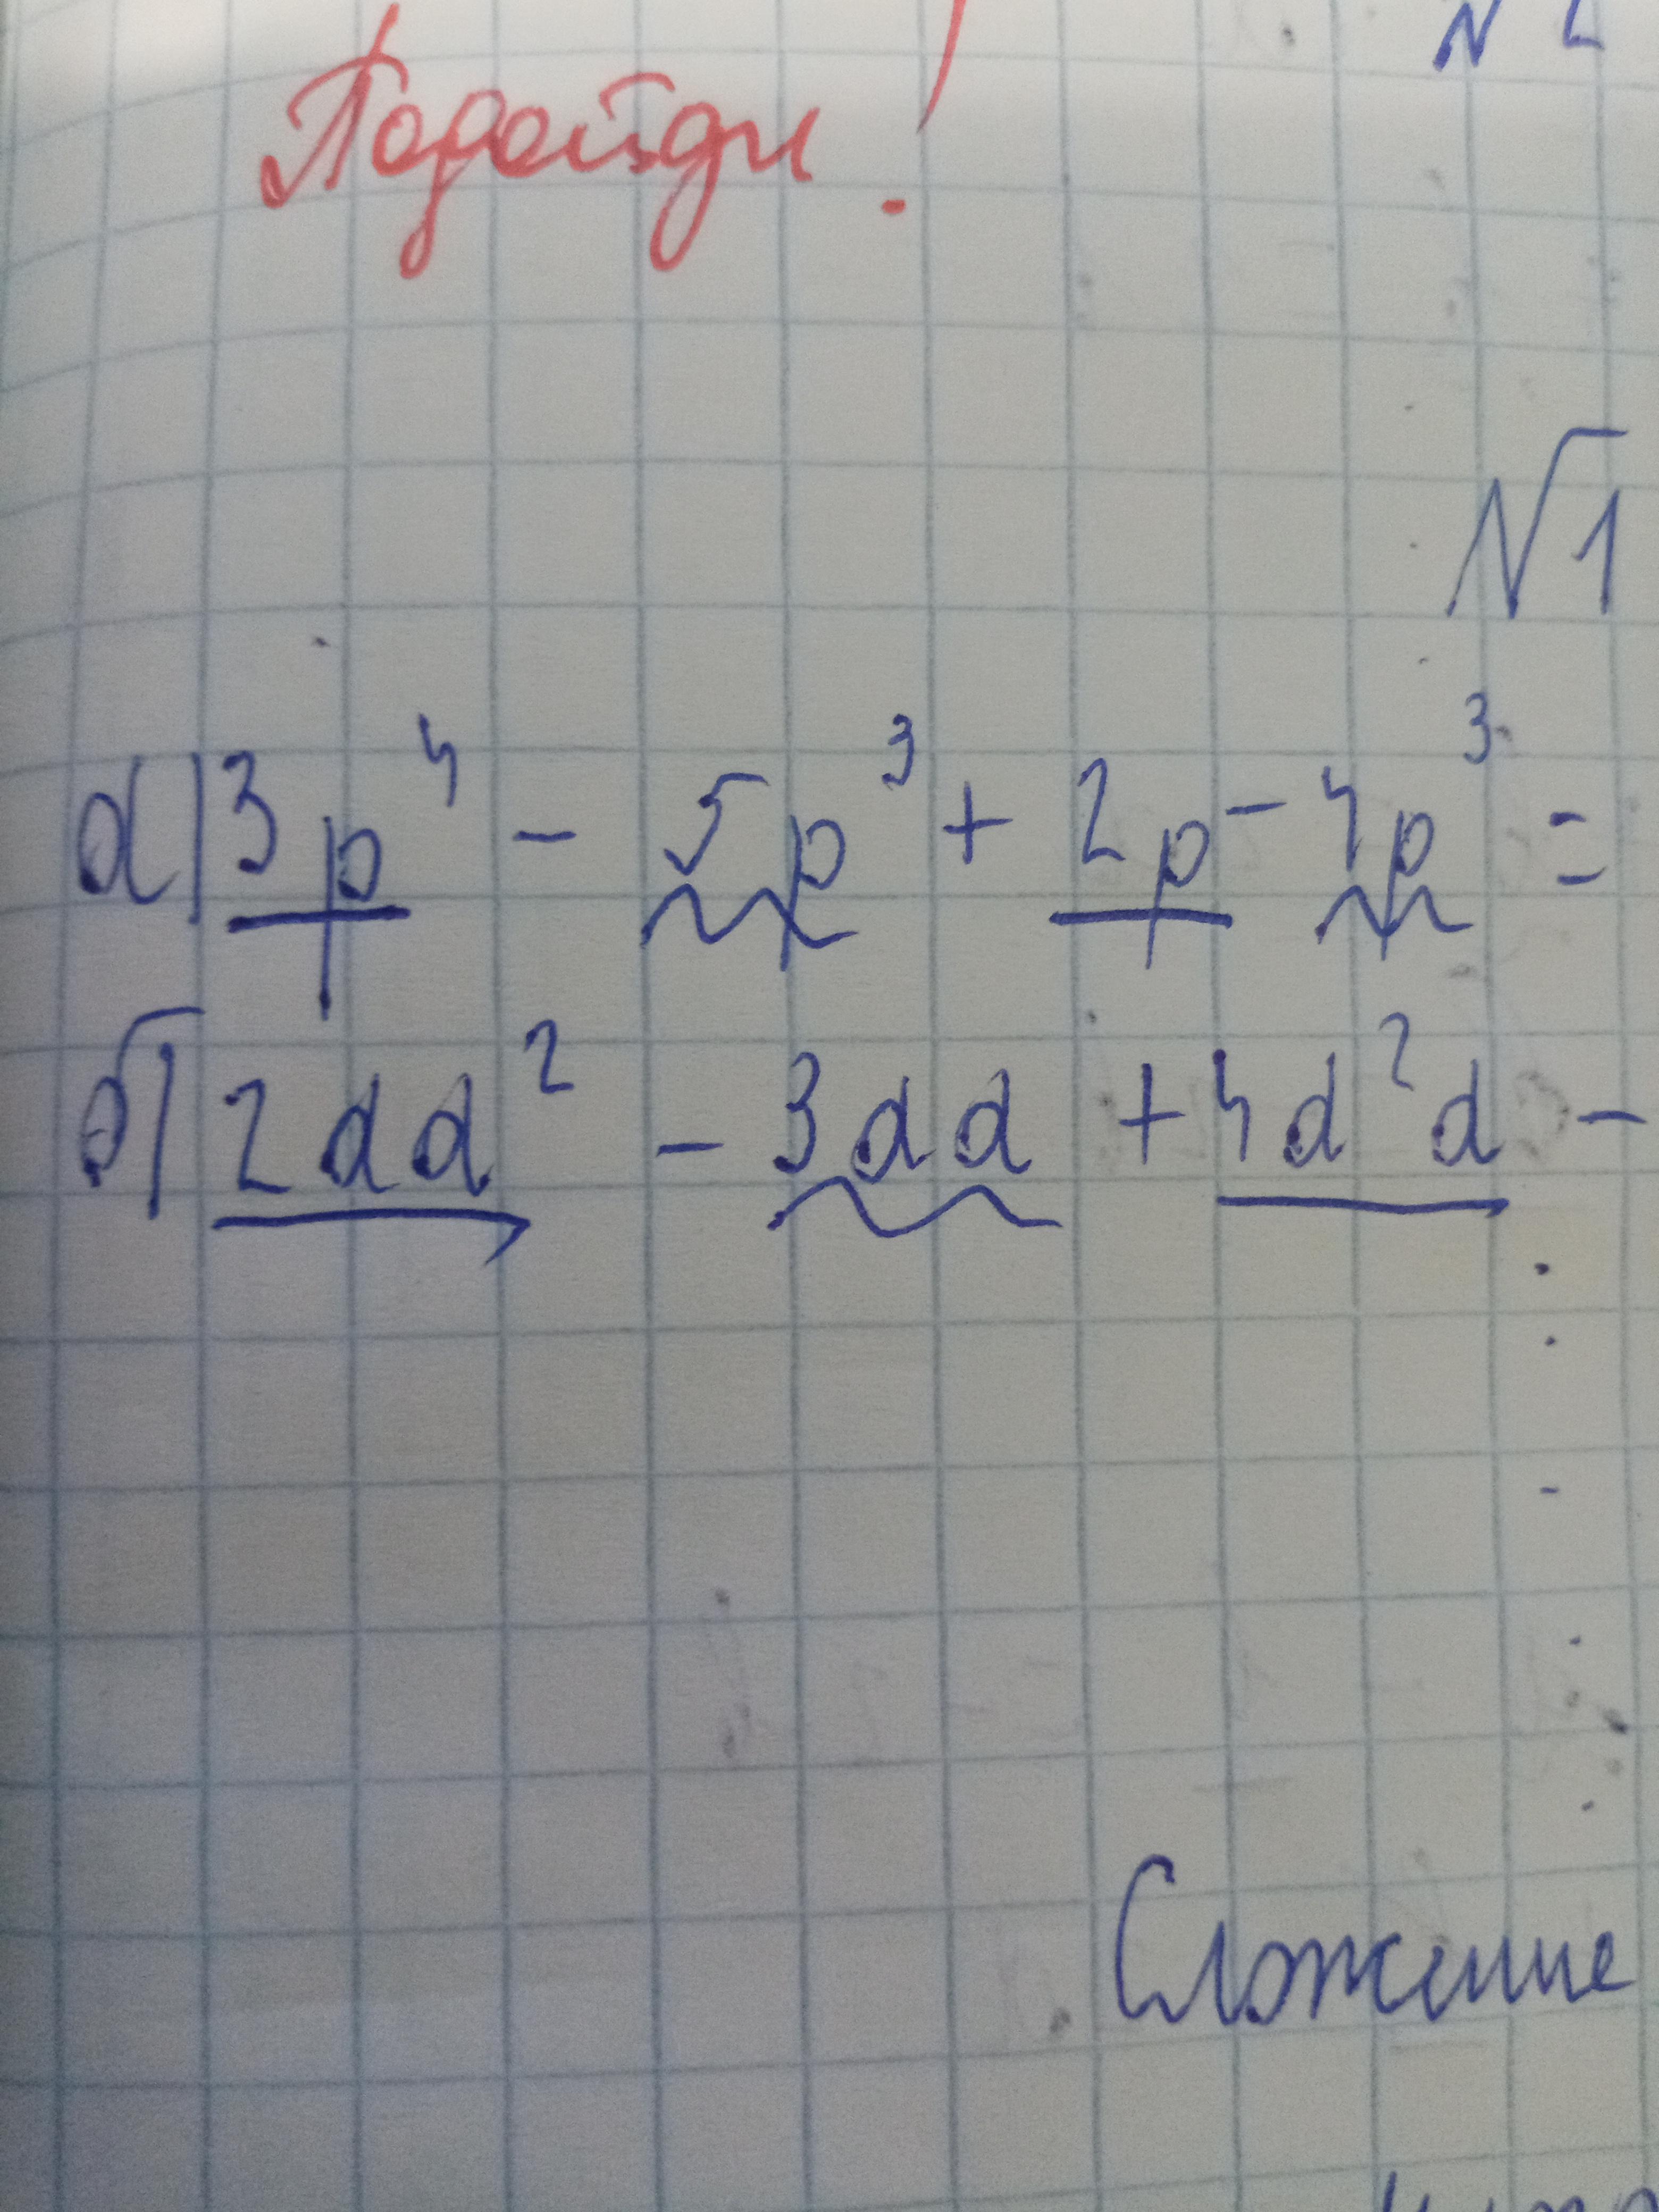 Подойди!
№2
№1
а) 3p⁴ - 5p³ + 2p - 4p³ =
б) 2dd² - 3dd + 4d²d -
Сложение